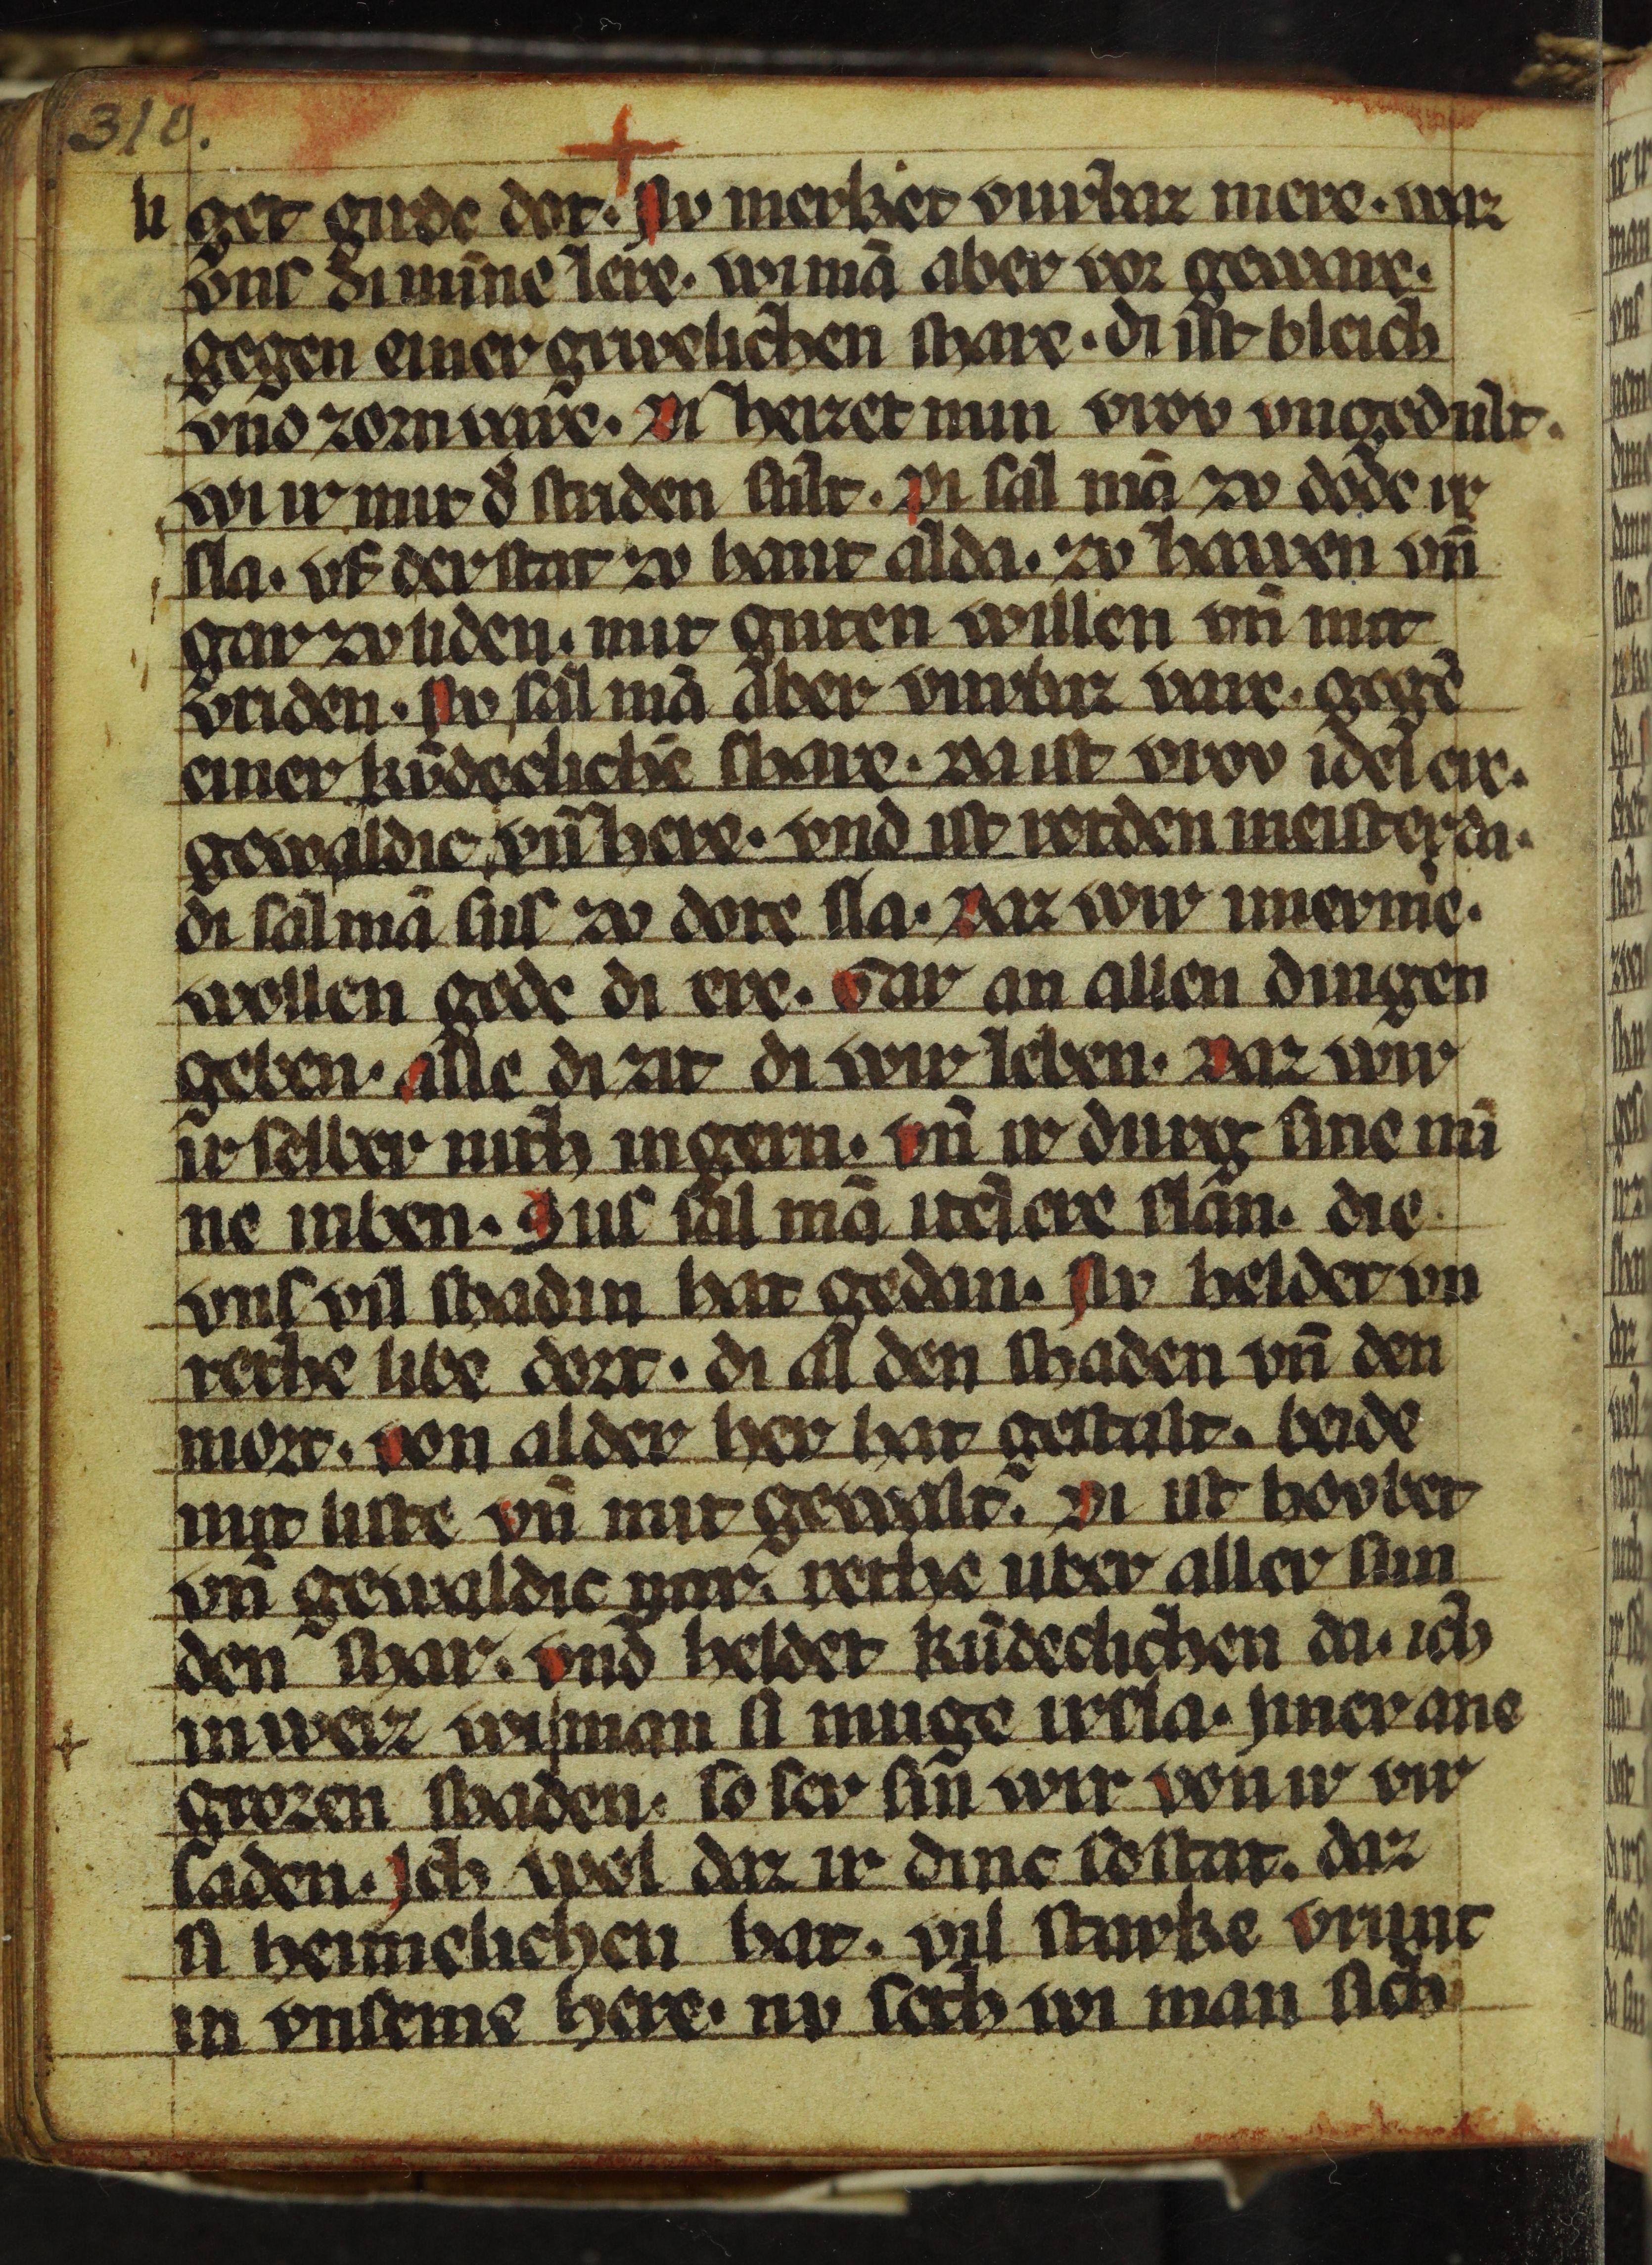 310.
li get gude dot. Nv merket vurbaz mere. waz
vns di minne lere. wi mā aber vor geware.
gegen einer gruwelichen share. di ist bleich
vnd zornvare. Di heizet min vrov vngedult.
wi ir mit d̓ studen stilt. Di sal mā zv dode ir
sla. vf der stat zv hant alda. zv hawen vn̄
gar zv liden. mit guten willen vn̄ mit
vriden. Nv sal mā aber vurbaz vare. gegē
einer kv̄declichē share. Daz ist vrov idel ere.
gewaldic vn̄ here. vnd ist retden meister da.
di sal mā sus zv dore sla. Daz wir imer me.
wollen gode di ere. Gar an allen dingen
geben. alle di zit di wir leben. Daz wir
ir selber nith ingern. vn̄ ir durg sine mi
ne inben. Sus sal mā itel ere slan. die
vns vil shadin hat gedan. Nv heldet vn
rethe libe dort. di al den shaden vn̄ den
mort. von alder her hat gestalt. beide
mit liste vn̄ mit gewalt. Di ist hovbet
vn̄ gewaldic gar. rethe uber aller sun
den shar. vnd heldet kv̄declichen da. ich
inweiz wi man si muge irsla. Jmer ane
grozen shaden. so ser sin wir von ir vir
laden. Jch wol daz ir dinc so stat. daz
si heimelichen hat. vil starke vrunt
in vnseme here. nv seth wi man sich